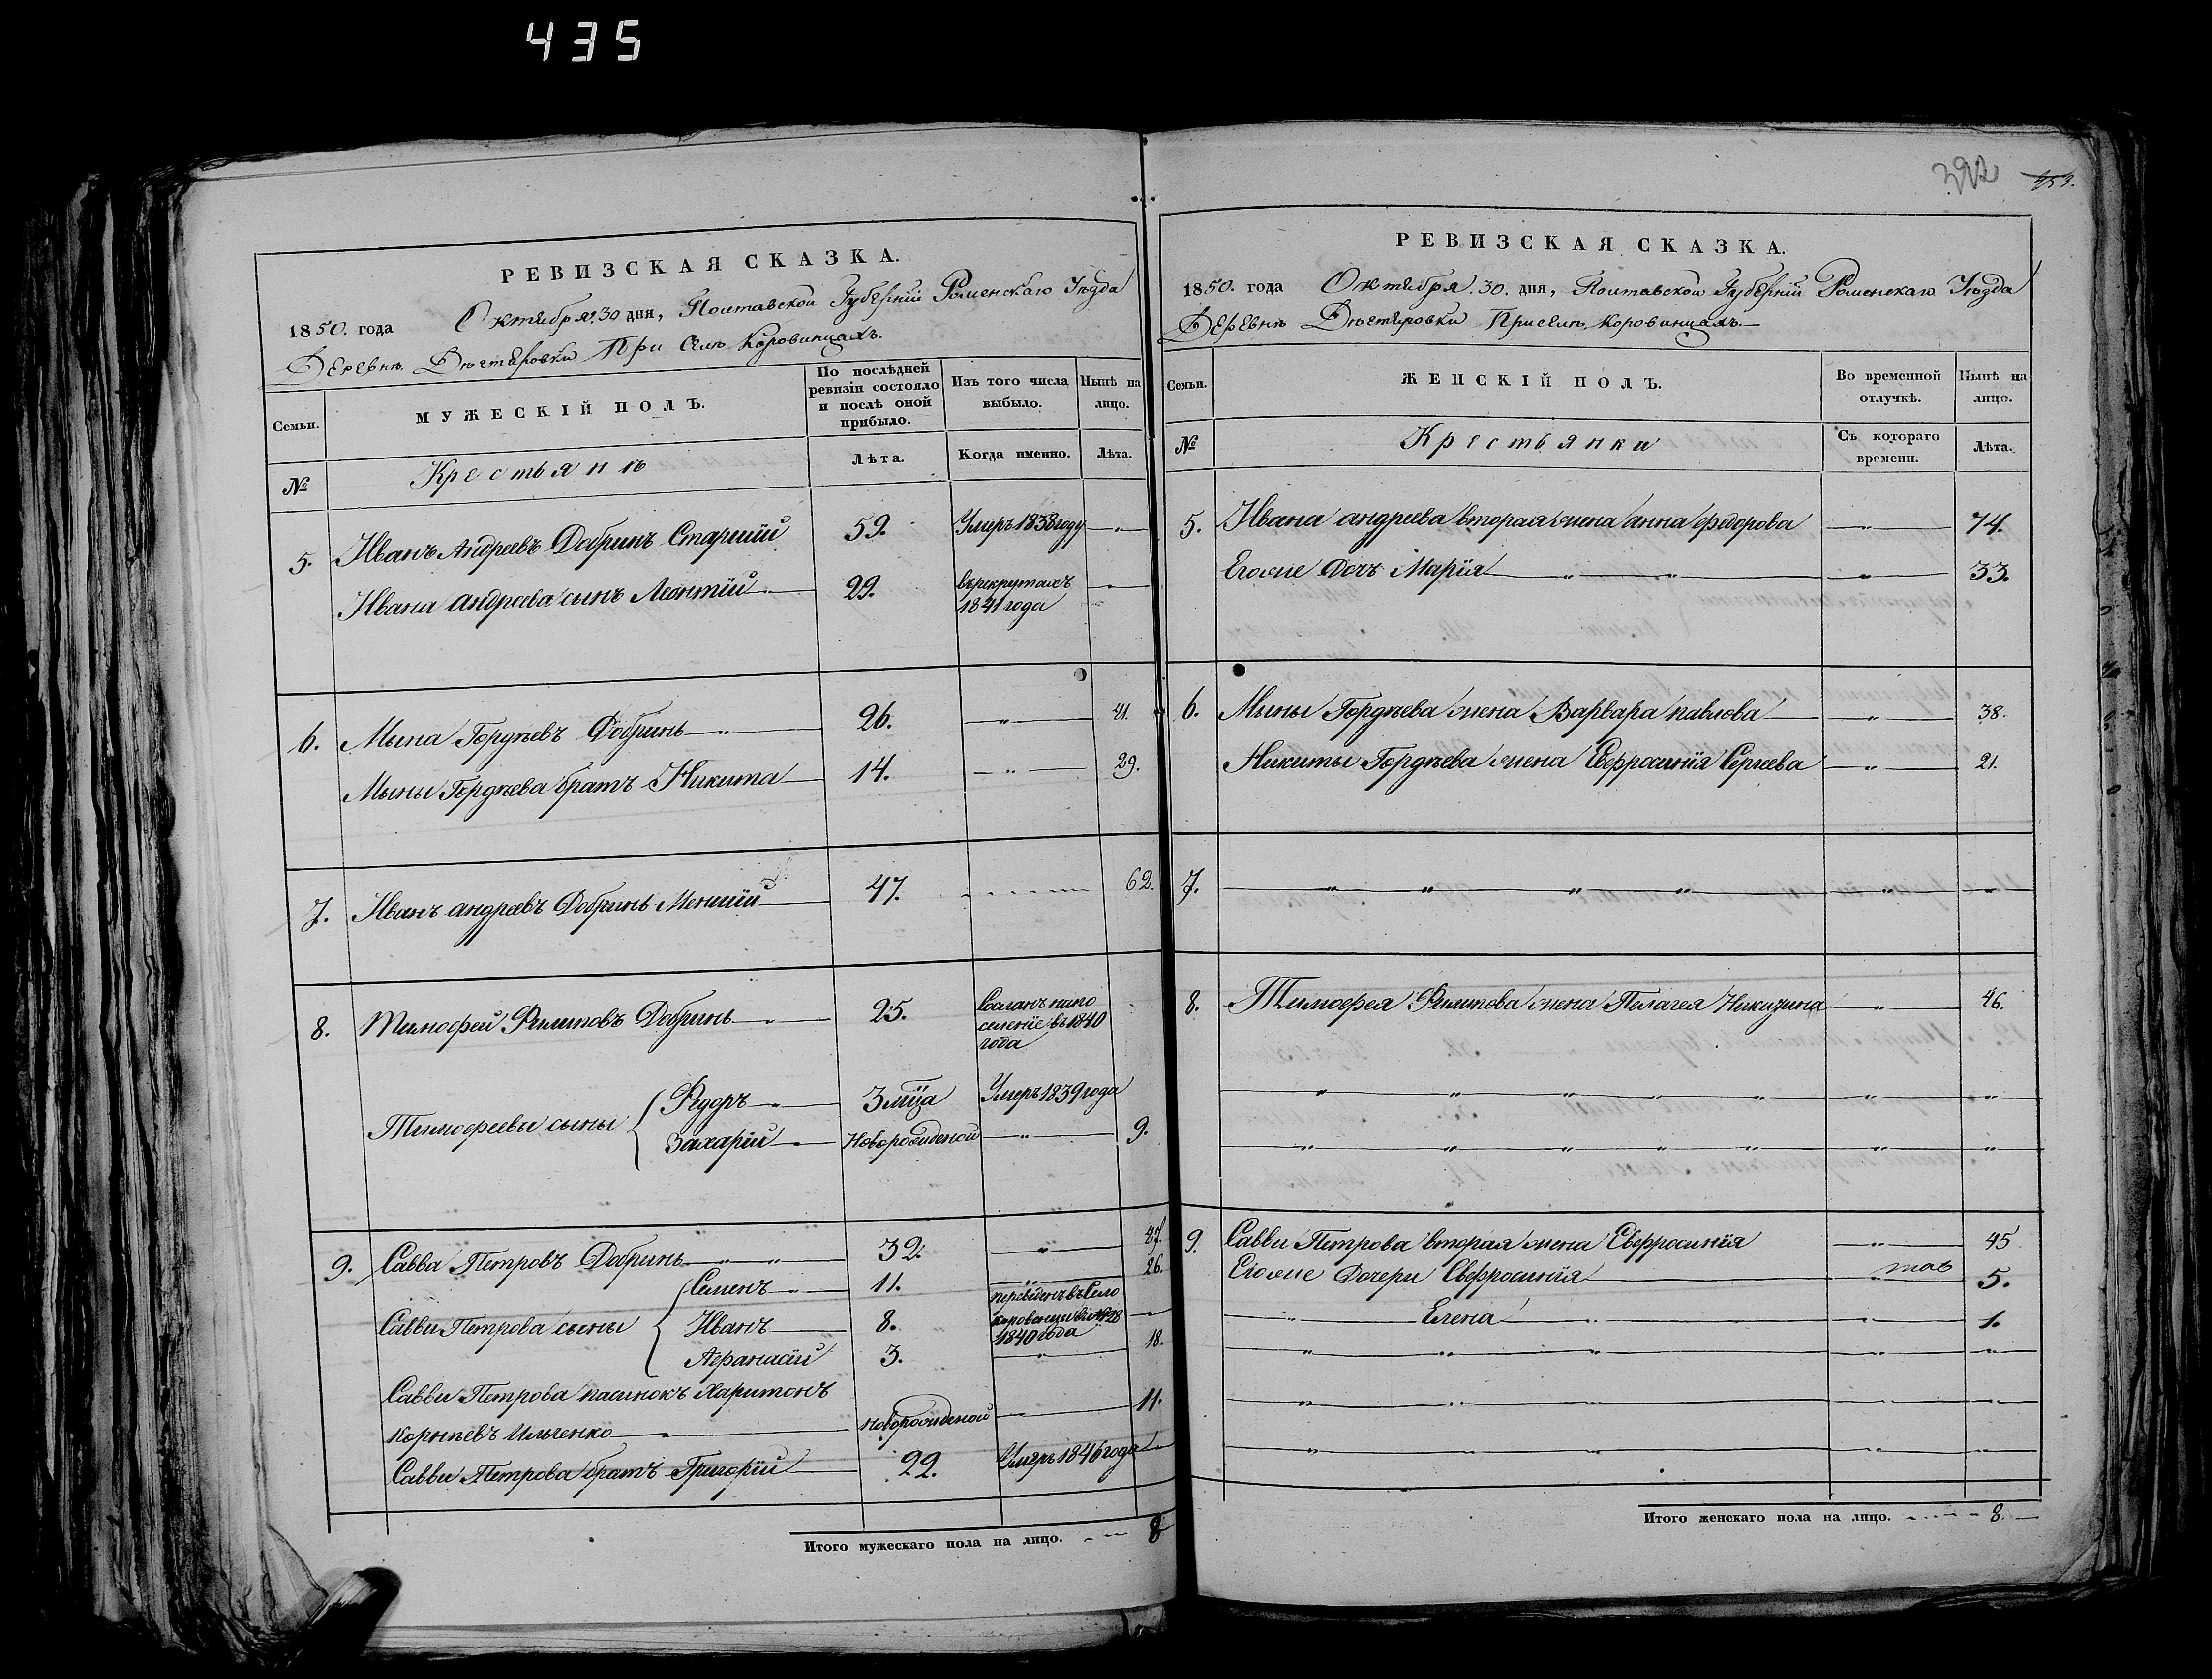 435
РЕВИЗСКАЯ СКАЗКА.
1850. года Октября. 30 дня, Полтавской Губерніи Роменскаго Уѣзда
Деревнѣ При Селѣ Коровинцахъ.
Семьи.
МУЖЕСКІЙ ПОЛЪ.
По послѣдней ревизіи состояло и послѣ оной прибыло.
Изъ того числа выбыло.
Нынѣ на лицо.
№
Крестьянъ
Лѣта.
Когда именно.
Лѣта.
5. Иванъ Андреевъ Добринь Старшій 59. Умеръ 1838 году — " —
Ивана Андреева сынъ Леонтій 29. въ рекрутахъ 1841 года — " —
6. Мына Гордѣевъ Добринь — " — 26. — " — 41.
Мыны Гордѣева братъ Никита 14. — " — 29.
7. Иванъ андреевъ Добринь Меншій 47. 62.
8. Тимофей Филиповъ Добринь — " — 25. Сосланъ на поселеніе въ 1840 года
Тимофеевы сыны { Федоръ — " — 3 мца Умеръ 1839 года
Захарій — " — Новорожденой — " — 9.
9. Савва Петровъ Добринь — " — " — 32. — " — 47.
Савви Петрова сыны { Семенъ — " — 11. " 26.
Иванъ 8. переведенъ въ Село 1840 года — " —
Афанасій 3. — " — 18.
Савви Петрова пасинокъ Харитонъ
Корнѣевъ Ильченко — " — Новорожденой 11.
Савви Петрова братъ Григорій 22. Умеръ 1846 года "
Итого мужескаго пола на лицо. 8
392 453.
РЕВИЗСКАЯ СКАЗКА.
1850. года Октября. 30. дня, Полтавской Губерніи Роменскаго Уѣзда
Деревнѣ При селѣ Коровинцахъ.
Семьи.
ЖЕНСКІЙ ПОЛЪ.
Во временной отлучкѣ.
Нынѣ на лицо.
№
Крестьянки
Съ котораго времени.
Лѣта.
5. Ивана андреева вторая жена анна федорова — " — 74.
Егоже Дочъ Марія — " — " — " — 33.
6. Мыны Гордѣева жена Варвара павлова — " — 38.
Никиты Гордѣева жена Евфросинія Сергеева — " — 21.
7. — " — " — " — " — " — " —
8. Тимофея Филипова жена Пелагея — " — 46.
— " — " — " — " — " — " — " —
— " — " — " — " — " — " — " —
9. Савви Петрова вторая жена Евфросинія — " — 45
Егоже Дочери Евфросинія 5.
— " — Елена — " — " — 1.
— " — " — " — " — " —
— " — " — " — " — " —
— " — " — " — " — " —
Итого женскаго пола на лицо. 8.